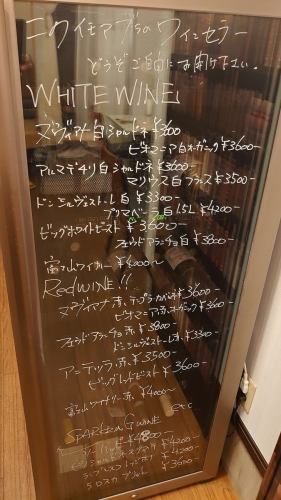 ニクイモアブラのワインセラー
どうぞご自由にお開け下さい。
WHITE WINE
ヌヴィアナ白シャルドネ ¥3600
ビオマニア白オーガニック ¥3600-
アルマデチリ白シャルドネ ¥3600-
マリウス白フランス ¥3500-
ドンシルヴェストーレ白 ¥3300-
プリマベーラ白 1.5L ¥4200-
ビッグホワイトビースト ¥3600-
フォウドアランチョ白 ¥3800-
富士山ワイナリー ¥4000〜
Red WINE!!
ヌヴィアナ赤 テンプラ・カベルネ ¥3600-
ビオマニア赤オーガニック ¥3600-
フォウドアランチョ赤 ¥3800-
ドンシルヴェストーレ赤 ¥3300-
赤 ¥3500-
ビッグレッドビースト ¥3600-
富士山ワイナリー赤 ¥4000〜
etc
SPARKLING WINE
¥4800
¥4200-
¥4200-
¥3600-